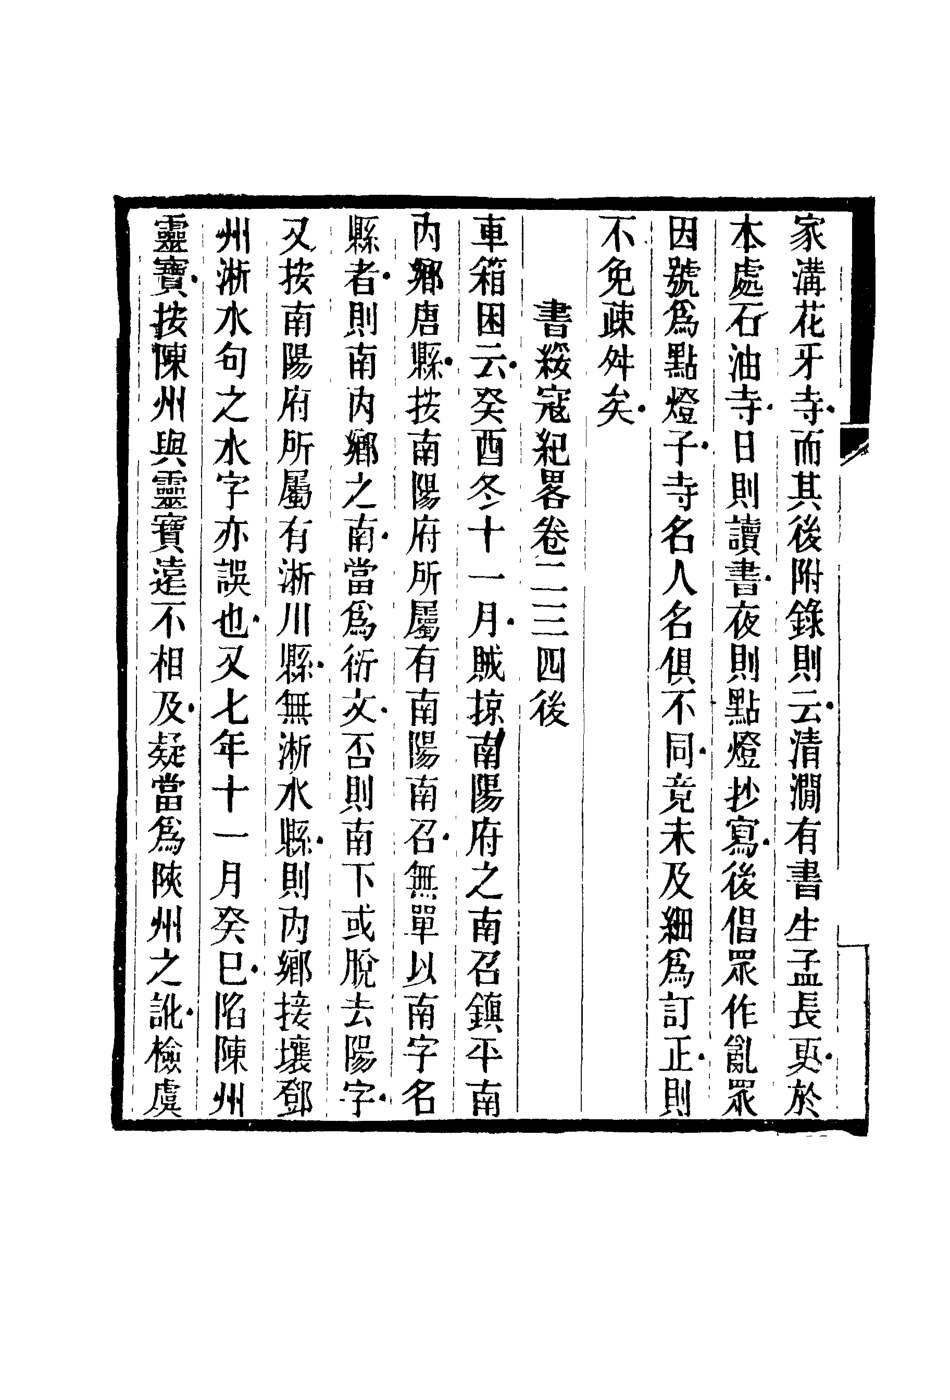 家溝花牙寺而其後附錄則云清澗有書生孟長更於
本處石油寺日則讀書夜則點燈抄寫後倡眾作亂眾
因號爲點燈子寺名人名俱不同竟未及細爲訂正則
不免疎舛矣
書綏寇紀畧卷二三四後
車箱困云癸酉冬十一月賊掠南陽府之南召鎮平南
內鄉唐縣按南陽府所屬有南陽南召無單以南字名
縣者則南內鄉之南當爲衍文否則南下或脫去陽字
又按南陽府所屬有淅川縣無淅水縣則內鄉接壤鄧
州淅水句之水字亦誤也又七年十一月癸巳陷陳州
靈寶按陳州與靈寶遠不相及疑當爲陝州之訛檢虞